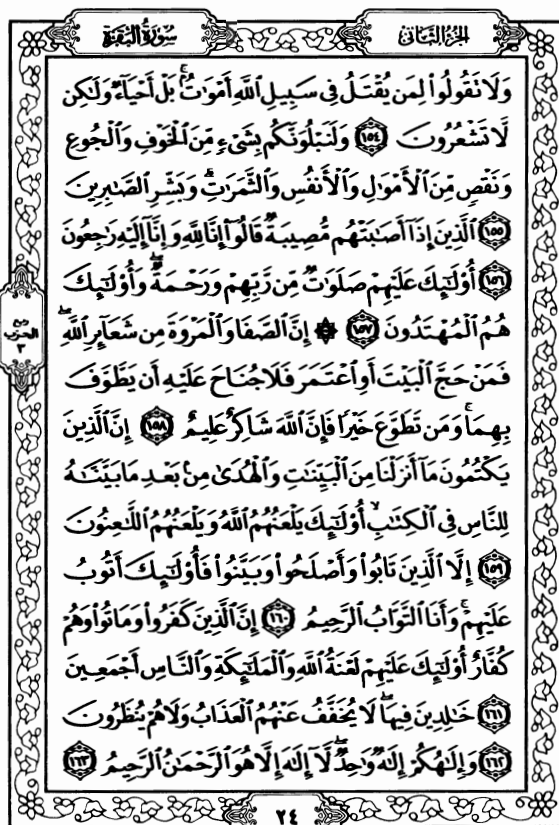 سُورَةُ البَقَرَةِ
الجُزءُ الثَّانِي
وَلَا تَقُولُوا۟ لِمَن يُقْتَلُ فِى سَبِيلِ ٱللَّهِ أَمْوَٰتٌۢ ۚ بَلْ أَحْيَآءٌ وَلَٰكِن
لَّا تَشْعُرُونَ ١٥٤ وَلَنَبْلُوَنَّكُم بِشَىْءٍ مِّنَ ٱلْخَوْفِ وَٱلْجُوعِ
وَنَقْصٍ مِّنَ ٱلْأَمْوَٰلِ وَٱلْأَنفُسِ وَٱلثَّمَرَٰتِ ۗ وَبَشِّرِ ٱلصَّٰبِرِينَ
١٥٥ ٱلَّذِينَ إِذَآ أَصَٰبَتْهُم مُّصِيبَةٌ قَالُوٓا۟ إِنَّا لِلَّهِ وَإِنَّآ إِلَيْهِ رَٰجِعُونَ
١٥٦ أُو۟لَٰٓئِكَ عَلَيْهِمْ صَلَوَٰتٌ مِّن رَّبِّهِمْ وَرَحْمَةٌ ۖ وَأُو۟لَٰٓئِكَ
هُمُ ٱلْمُهْتَدُونَ ١٥٧ ۞ إِنَّ ٱلصَّفَا وَٱلْمَرْوَةَ مِن شَعَآئِرِ ٱللَّهِ ۖ
فَمَنْ حَجَّ ٱلْبَيْتَ أَوِ ٱعْتَمَرَ فَلَا جُنَاحَ عَلَيْهِ أَن يَطَّوَّفَ
بِهِمَا ۚ وَمَن تَطَوَّعَ خَيْرًا فَإِنَّ ٱللَّهَ شَاكِرٌ عَلِيمٌ ١٥٨ إِنَّ ٱلَّذِينَ
يَكْتُمُونَ مَآ أَنزَلْنَا مِنَ ٱلْبَيِّنَٰتِ وَٱلْهُدَىٰ مِنۢ بَعْدِ مَا بَيَّنَّٰهُ
لِلنَّاسِ فِى ٱلْكِتَٰبِ ۙ أُو۟لَٰٓئِكَ يَلْعَنُهُمُ ٱللَّهُ وَيَلْعَنُهُمُ ٱللَّٰعِنُونَ
١٥٩ إِلَّا ٱلَّذِينَ تَابُوا۟ وَأَصْلَحُوا۟ وَبَيَّنُوا۟ فَأُو۟لَٰٓئِكَ أَتُوبُ
عَلَيْهِمْ ۚ وَأَنَا ٱلتَّوَّابُ ٱلرَّحِيمُ ١٦٠ إِنَّ ٱلَّذِينَ كَفَرُوا۟ وَمَاتُوا۟ وَهُمْ
كُفَّارٌ أُو۟لَٰٓئِكَ عَلَيْهِمْ لَعْنَةُ ٱللَّهِ وَٱلْمَلَٰٓئِكَةِ وَٱلنَّاسِ أَجْمَعِينَ
١٦١ خَٰلِدِينَ فِيهَا ۖ لَا يُخَفَّفُ عَنْهُمُ ٱلْعَذَابُ وَلَا هُمْ يُنظَرُونَ
١٦٢ وَإِلَٰهُكُمْ إِلَٰهٌ وَٰحِدٌ ۖ لَّآ إِلَٰهَ إِلَّا هُوَ ٱلرَّحْمَٰنُ ٱلرَّحِيمُ ١٦٣
ربع
الحزب
٣
٢٤